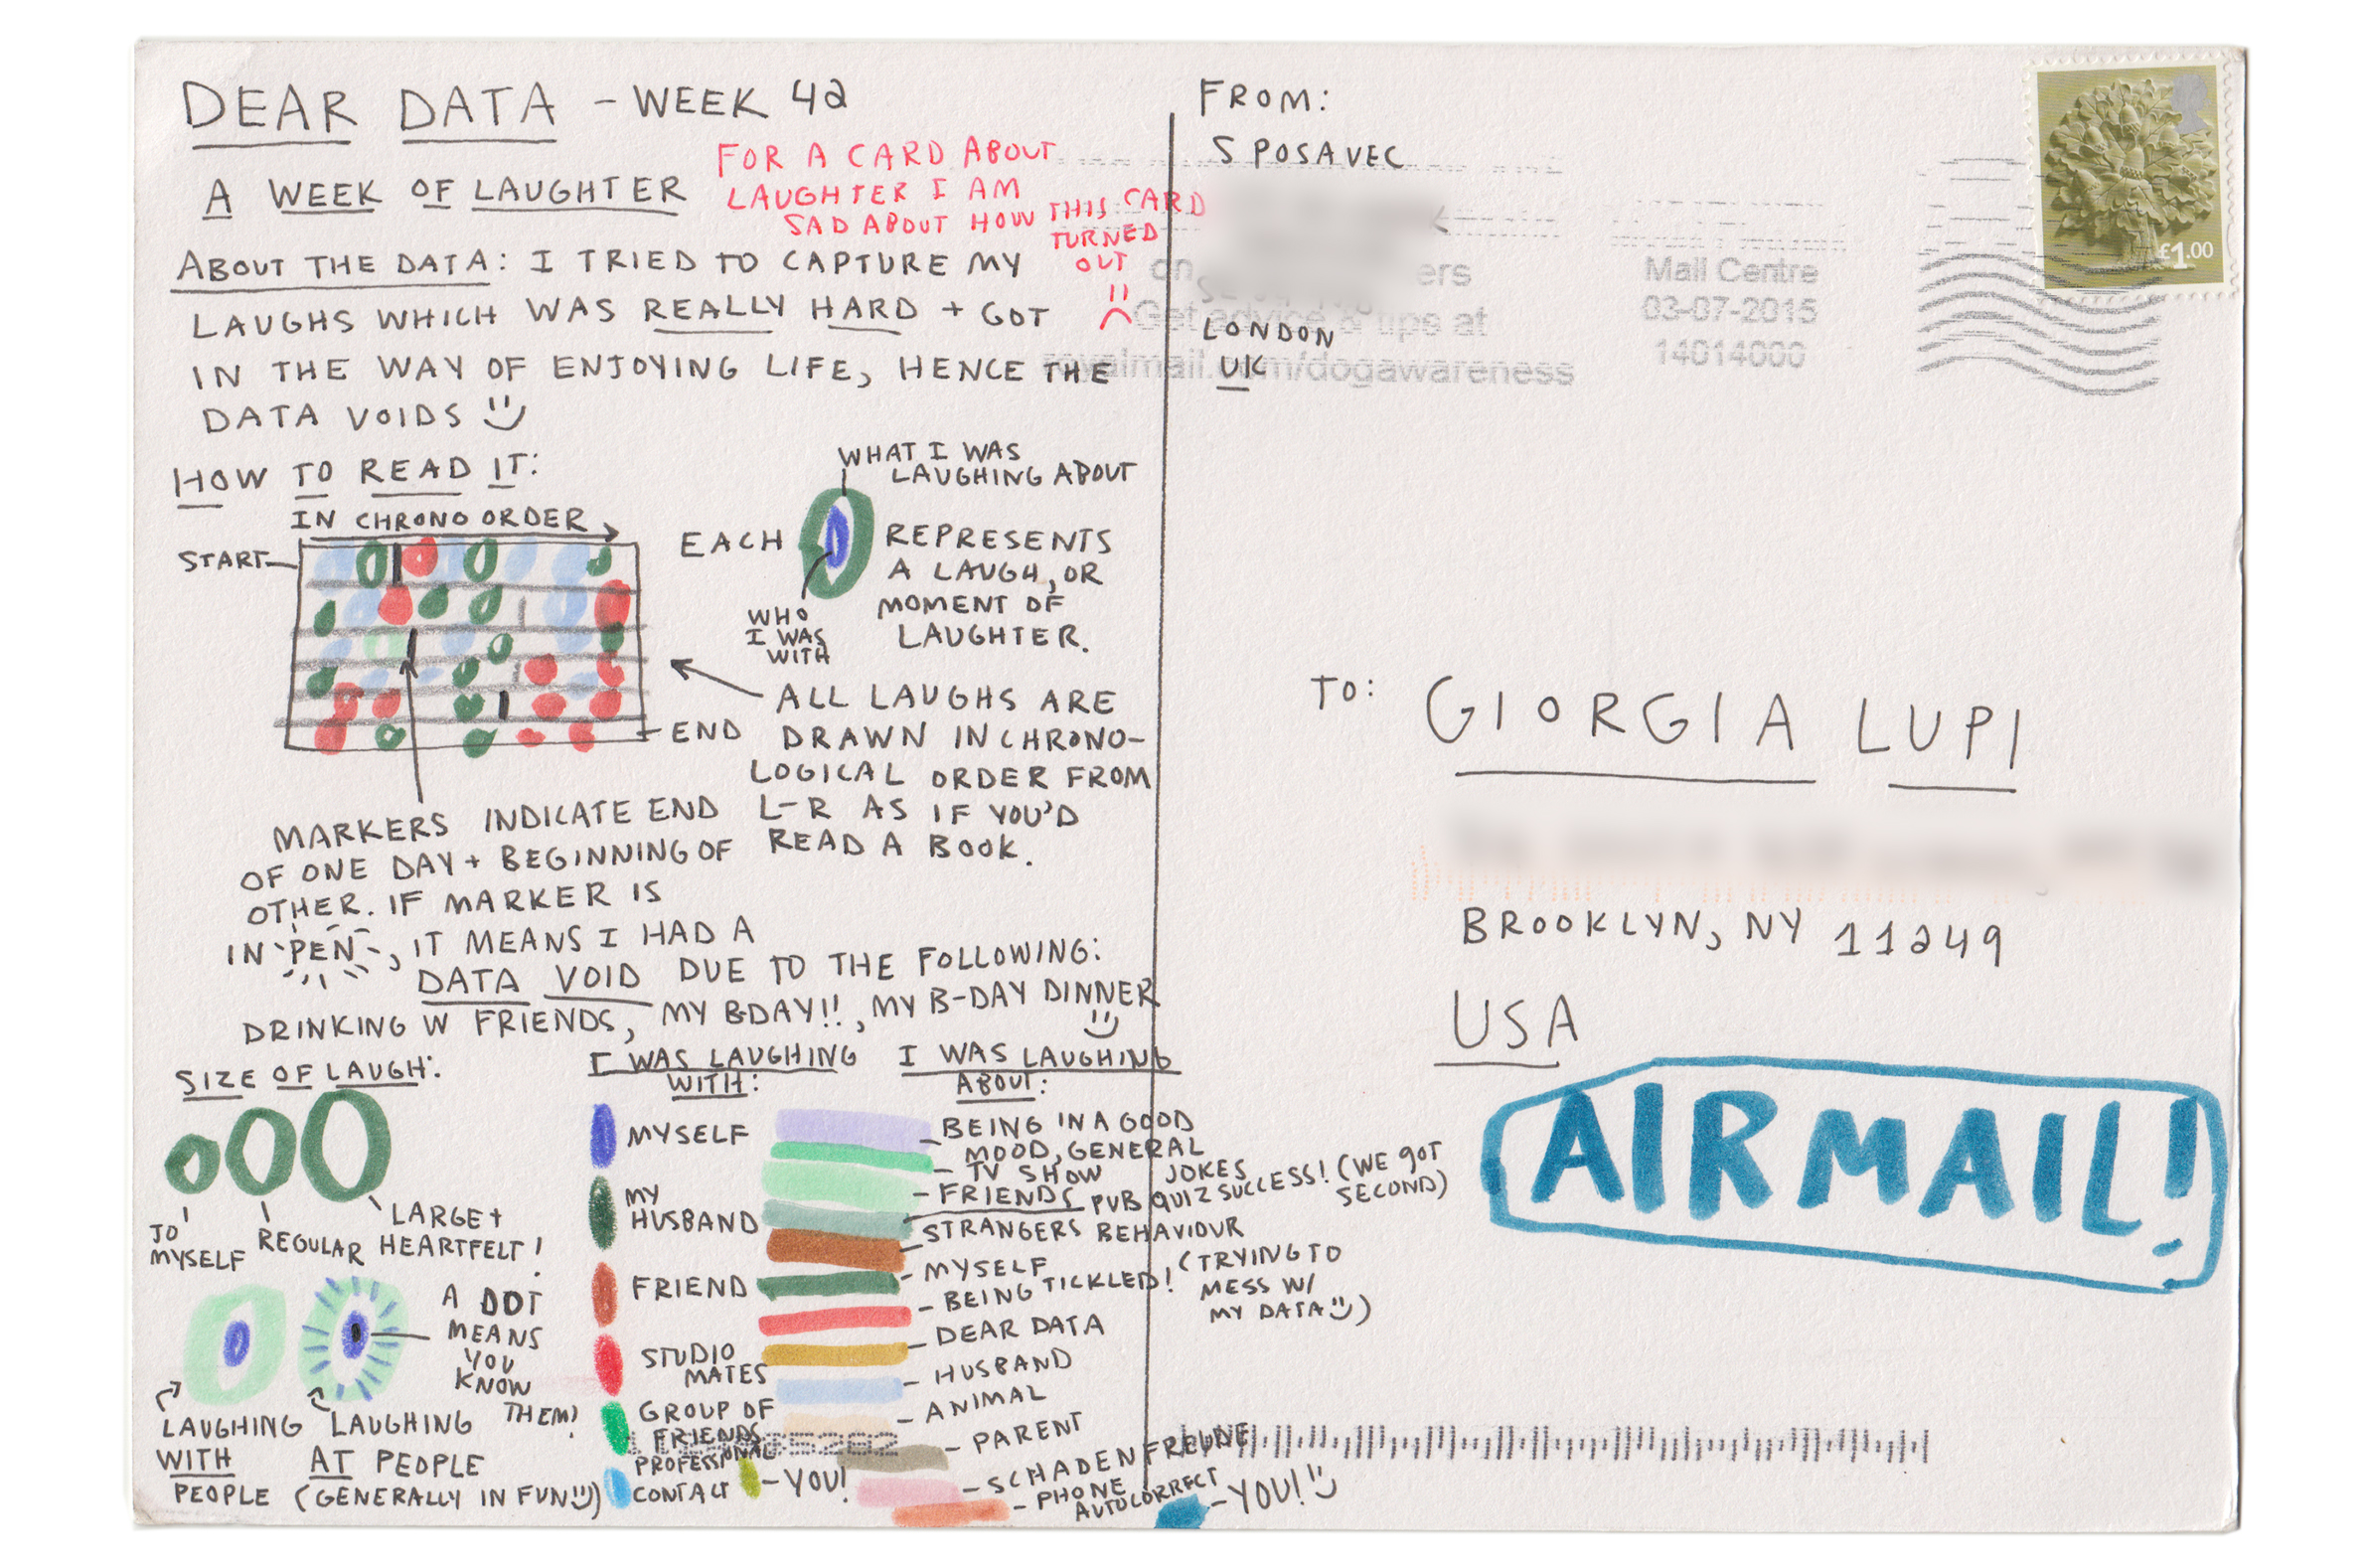 DEAR DATA - WEEK 42
A WEEK OF LAUGHTER
FOR A CARD ABOUT
LAUGHTER I AM
SAD ABOUT HOW THIS CARD
TURNED
OUT
ABOUT THE DATA: I TRIED TO CAPTURE MY
LAUGHS WHICH WAS REALLY HARD + GOT
IN THE WAY OF ENJOYING LIFE, HENCE THE
DATA VOIDS
HOW TO READ IT:
IN CHRONO ORDER
START
END
WHAT I WAS
LAUGHING ABOUT
EACH
REPRESENTS
A LAUGH, OR
MOMENT OF
LAUGHTER.
WHO
I WAS
WITH
ALL LAUGHS ARE
DRAWN IN CHRONO-
LOGICAL ORDER FROM
L-R AS IF YOU'D
READ A BOOK.
MARKERS INDICATE END
OF ONE DAY + BEGINNING OF
OTHER. IF MARKER IS
IN PEN, IT MEANS I HAD A
DATA VOID DUE TO THE FOLLOWING:
DRINKING W FRIENDS, MY BDAY!!, MY B-DAY DINNER
SIZE OF LAUGH:
TO
MYSELF
REGULAR
LARGE +
HEARTFELT!
A DOT
MEANS
YOU
KNOW
THEM!
LAUGHING
WITH
PEOPLE
LAUGHING
AT PEOPLE
(GENERALLY IN FUN)
I WAS LAUGHING
WITH:
MYSELF
MY
HUSBAND
FRIEND
STUDIO
MATES
GROUP OF
FRIENDS
PROFESSIONAL
CONTACT
- YOU!
I WAS LAUGHING
ABOUT:
- BEING IN A GOOD
MOOD, GENERAL
JOKES
- TV SHOW
- FRIENDS PUB QUIZ SUCCESS! (WE GOT
SECOND)
STRANGERS BEHAVIOUR
- MYSELF
- BEING TICKLED! (TRYING TO
MESS W/
MY DATA)
- DEAR DATA
- HUSBAND
- ANIMAL
- PARENT
- SCHADENFREUDE
- PHONE
AUTOCORRECT
- YOU!
FROM:
S POSAVEC
LONDON
UK
on
ers
Get advice & tips at
royalmail.com/dogawareness
Mail Centre
03-07-2015
14014000
£1.00
TO: GIORGIA LUPI
BROOKLYN, NY 11249
USA
AIRMAIL!